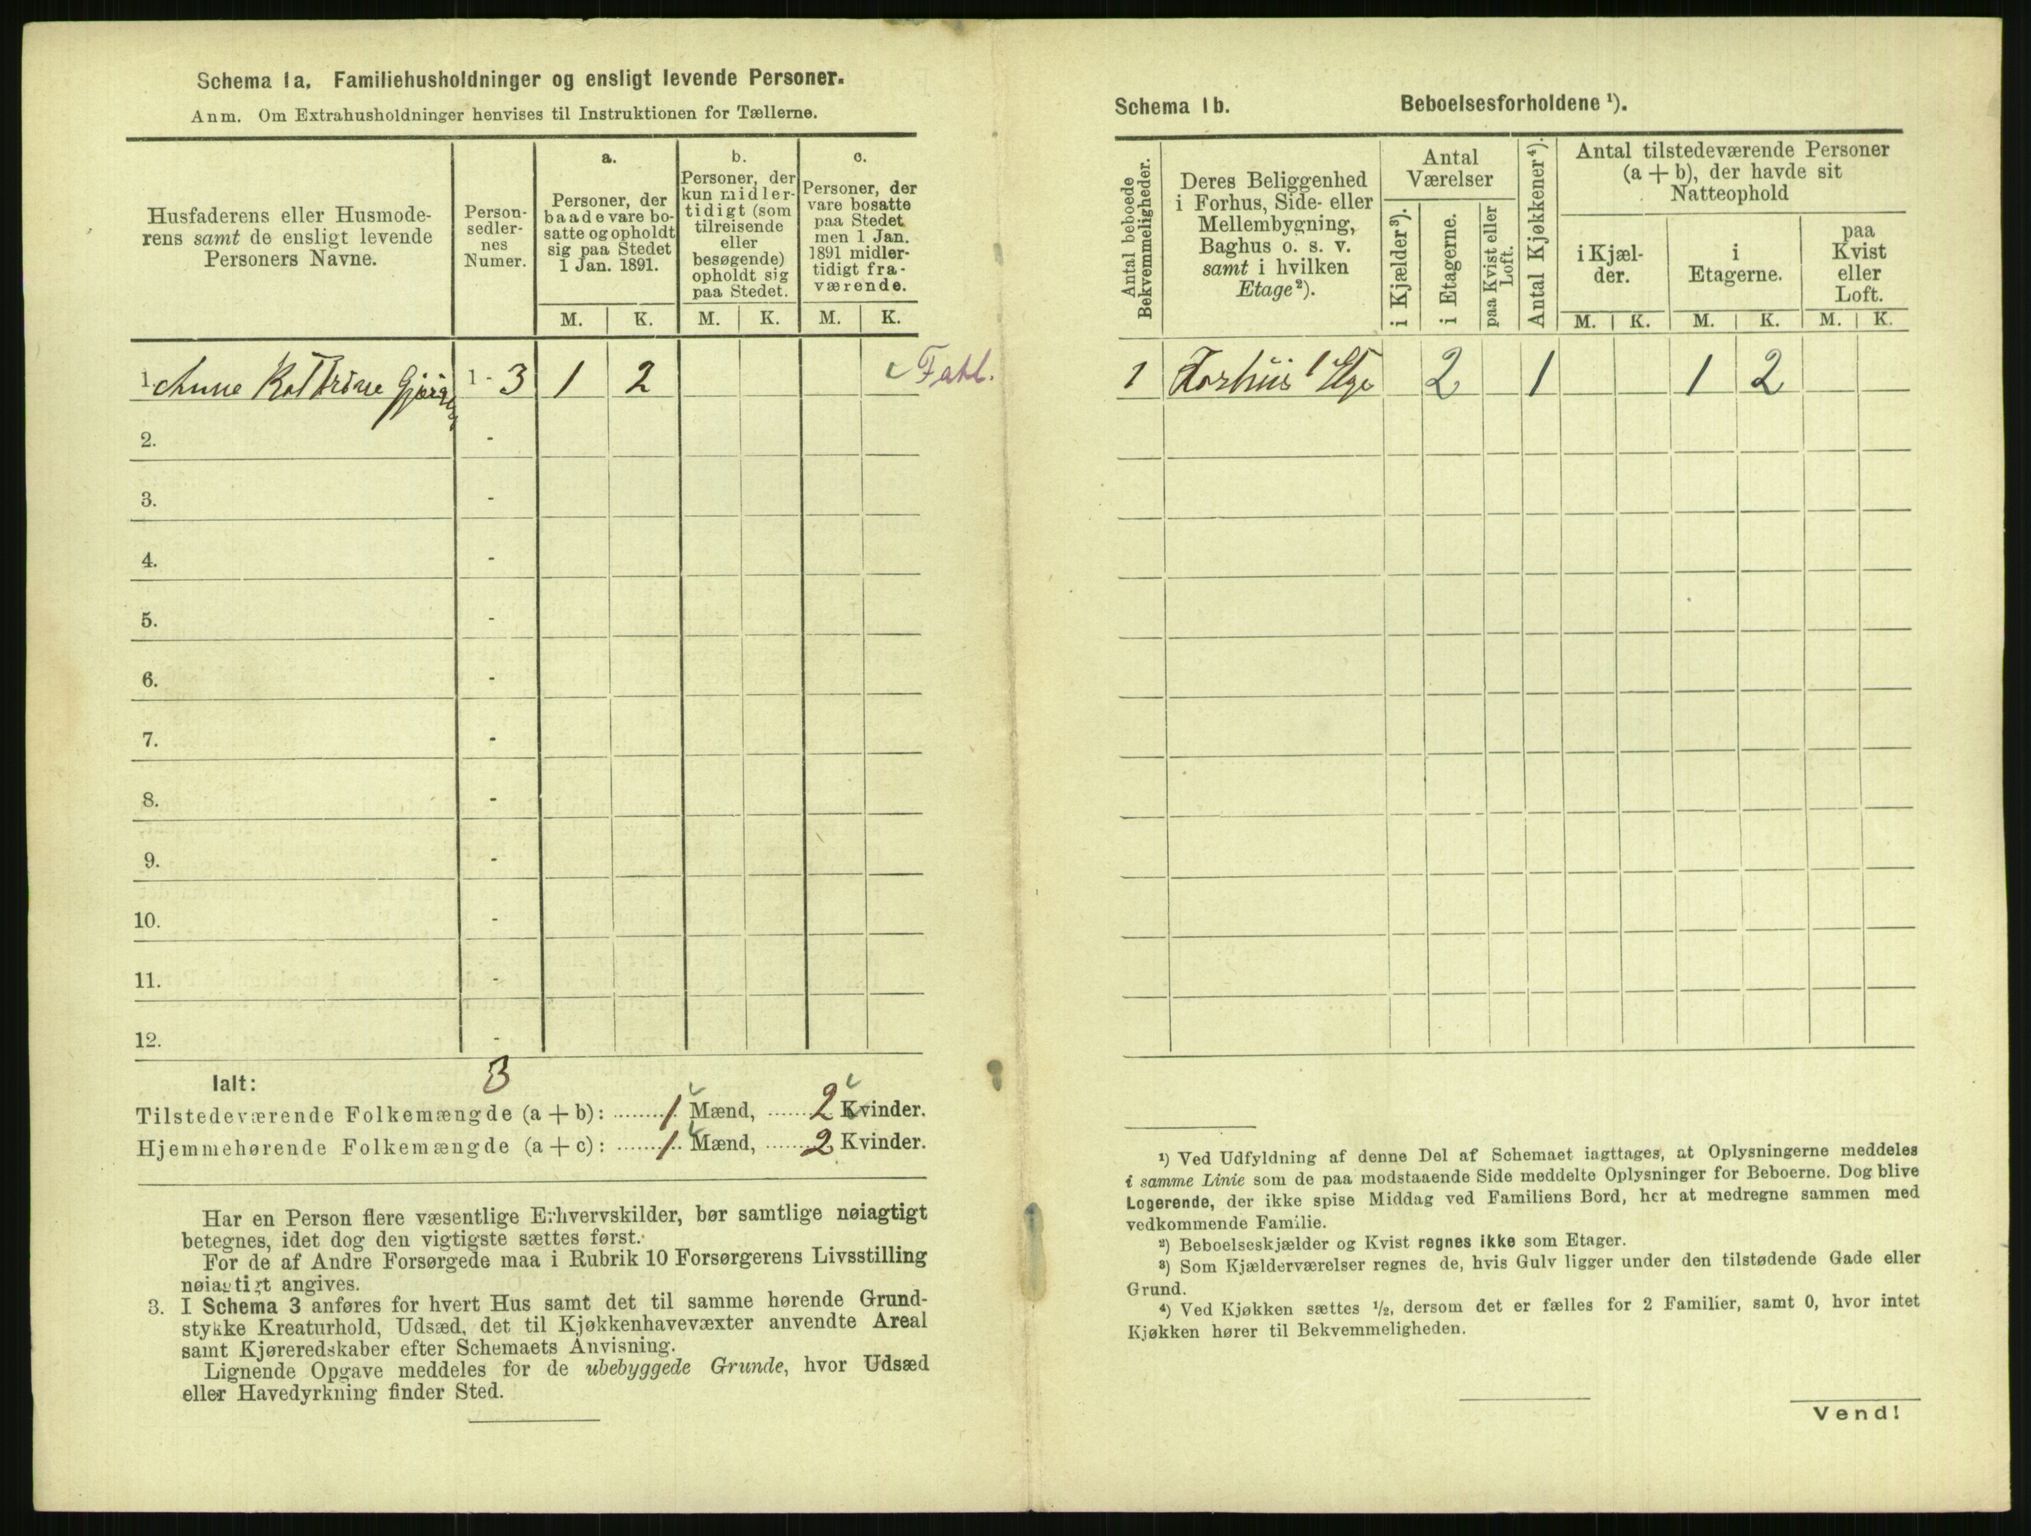 Schema 1a. Familiehusholdninger og ensligt levende Personer.
Anm. Om Extrahusholdninger henvises til Instruktionen for Tællerne.
Husfaderens eller Husmode-
rens samt de ensligt levende
Personers Navne.
Person-
sedler-
nes
Numer.
a.
Personer, der
baade vare bo-
satte og opholdt
sig paa Stedet
1 Jan. 1891.
b.
Personer, der
kun midler-
tidigt (som
tilreisende
eller
besøgende)
opholdt sig
paa Stedet.
c.
Personer, der
vare bosatte
paa Stedet
men 1 Jan.
1891 midler-
tidigt fra-
værende.
M. K. M. K. M. K.
1 Anne Kathrine 1 - 3 1 2 Fatl.
2. -
3. -
4. -
5. -
6. -
7. -
8. -
9. -
10. -
11. -
12. -
Ialt: 3
Tilstedeværende Folkemængde (a + b): 1 Mænd, 2 Kvinder.
Hjemmehørende Folkemængde (a + c): 1 Mænd, 2 Kvinder.
Har en Person flere væsentlige Erhvervskilder, bør samtlige nøiagtigt
betegnes, idet dog den vigtigste sættes først.
For de af Andre Forsørgede maa i Rubrik 10 Forsørgerens Livsstilling
nøiagtigt angives.
3. I Schema 3 anføres for hvert Hus samt det til samme hørende Grund-
stykke Kreaturhold, Udsæd, det til Kjøkkenhavevæxter anvendte Areal
samt Kjøreredskaber efter Schemaets Anvisning.
Lignende Opgave meddeles for de ubebyggede Grunde, hvor Udsæd
eller Havedyrkning finder Sted.
Schema 1b. Beboelsesforholdene ¹).
Antal beboede
Bekvemmeligheder.
Deres Beliggenhed
i Forhus, Side- eller
Mellembygning,
Baghus o. s. v.
samt i hvilken
Etage²).
Antal
Værelser
i Kjælder³).
i Etagerne.
paa Kvist eller
Loft.
Antal Kjøkkener⁴).
Antal tilstedeværende Personer
(a + b), der havde sit
Natteophold
i Kjæl-
der.
i
Etagerne.
paa
Kvist
eller
Loft.
M. K. M. K. M. K.
1 Forhus 1 Etge 2 1 1 2
¹) Ved Udfyldning af denne Del af Schemaet iagttages, at Oplysningerne meddeles
i samme Linie som de paa modstaaende Side meddelte Oplysninger for Beboerne. Dog blive
Logerende, der ikke spise Middag ved Familiens Bord, her at medregne sammen med
vedkommende Familie.
²) Beboelseskjælder og Kvist regnes ikke som Etager.
³) Som Kjælderværelser regnes de, hvis Gulv ligger under den tilstødende Gade eller
Grund.
⁴) Ved Kjøkken sættes ½, dersom det er fælles for 2 Familier, samt 0, hvor intet
Kjøkken hører til Bekvemmeligheden.
Vend!